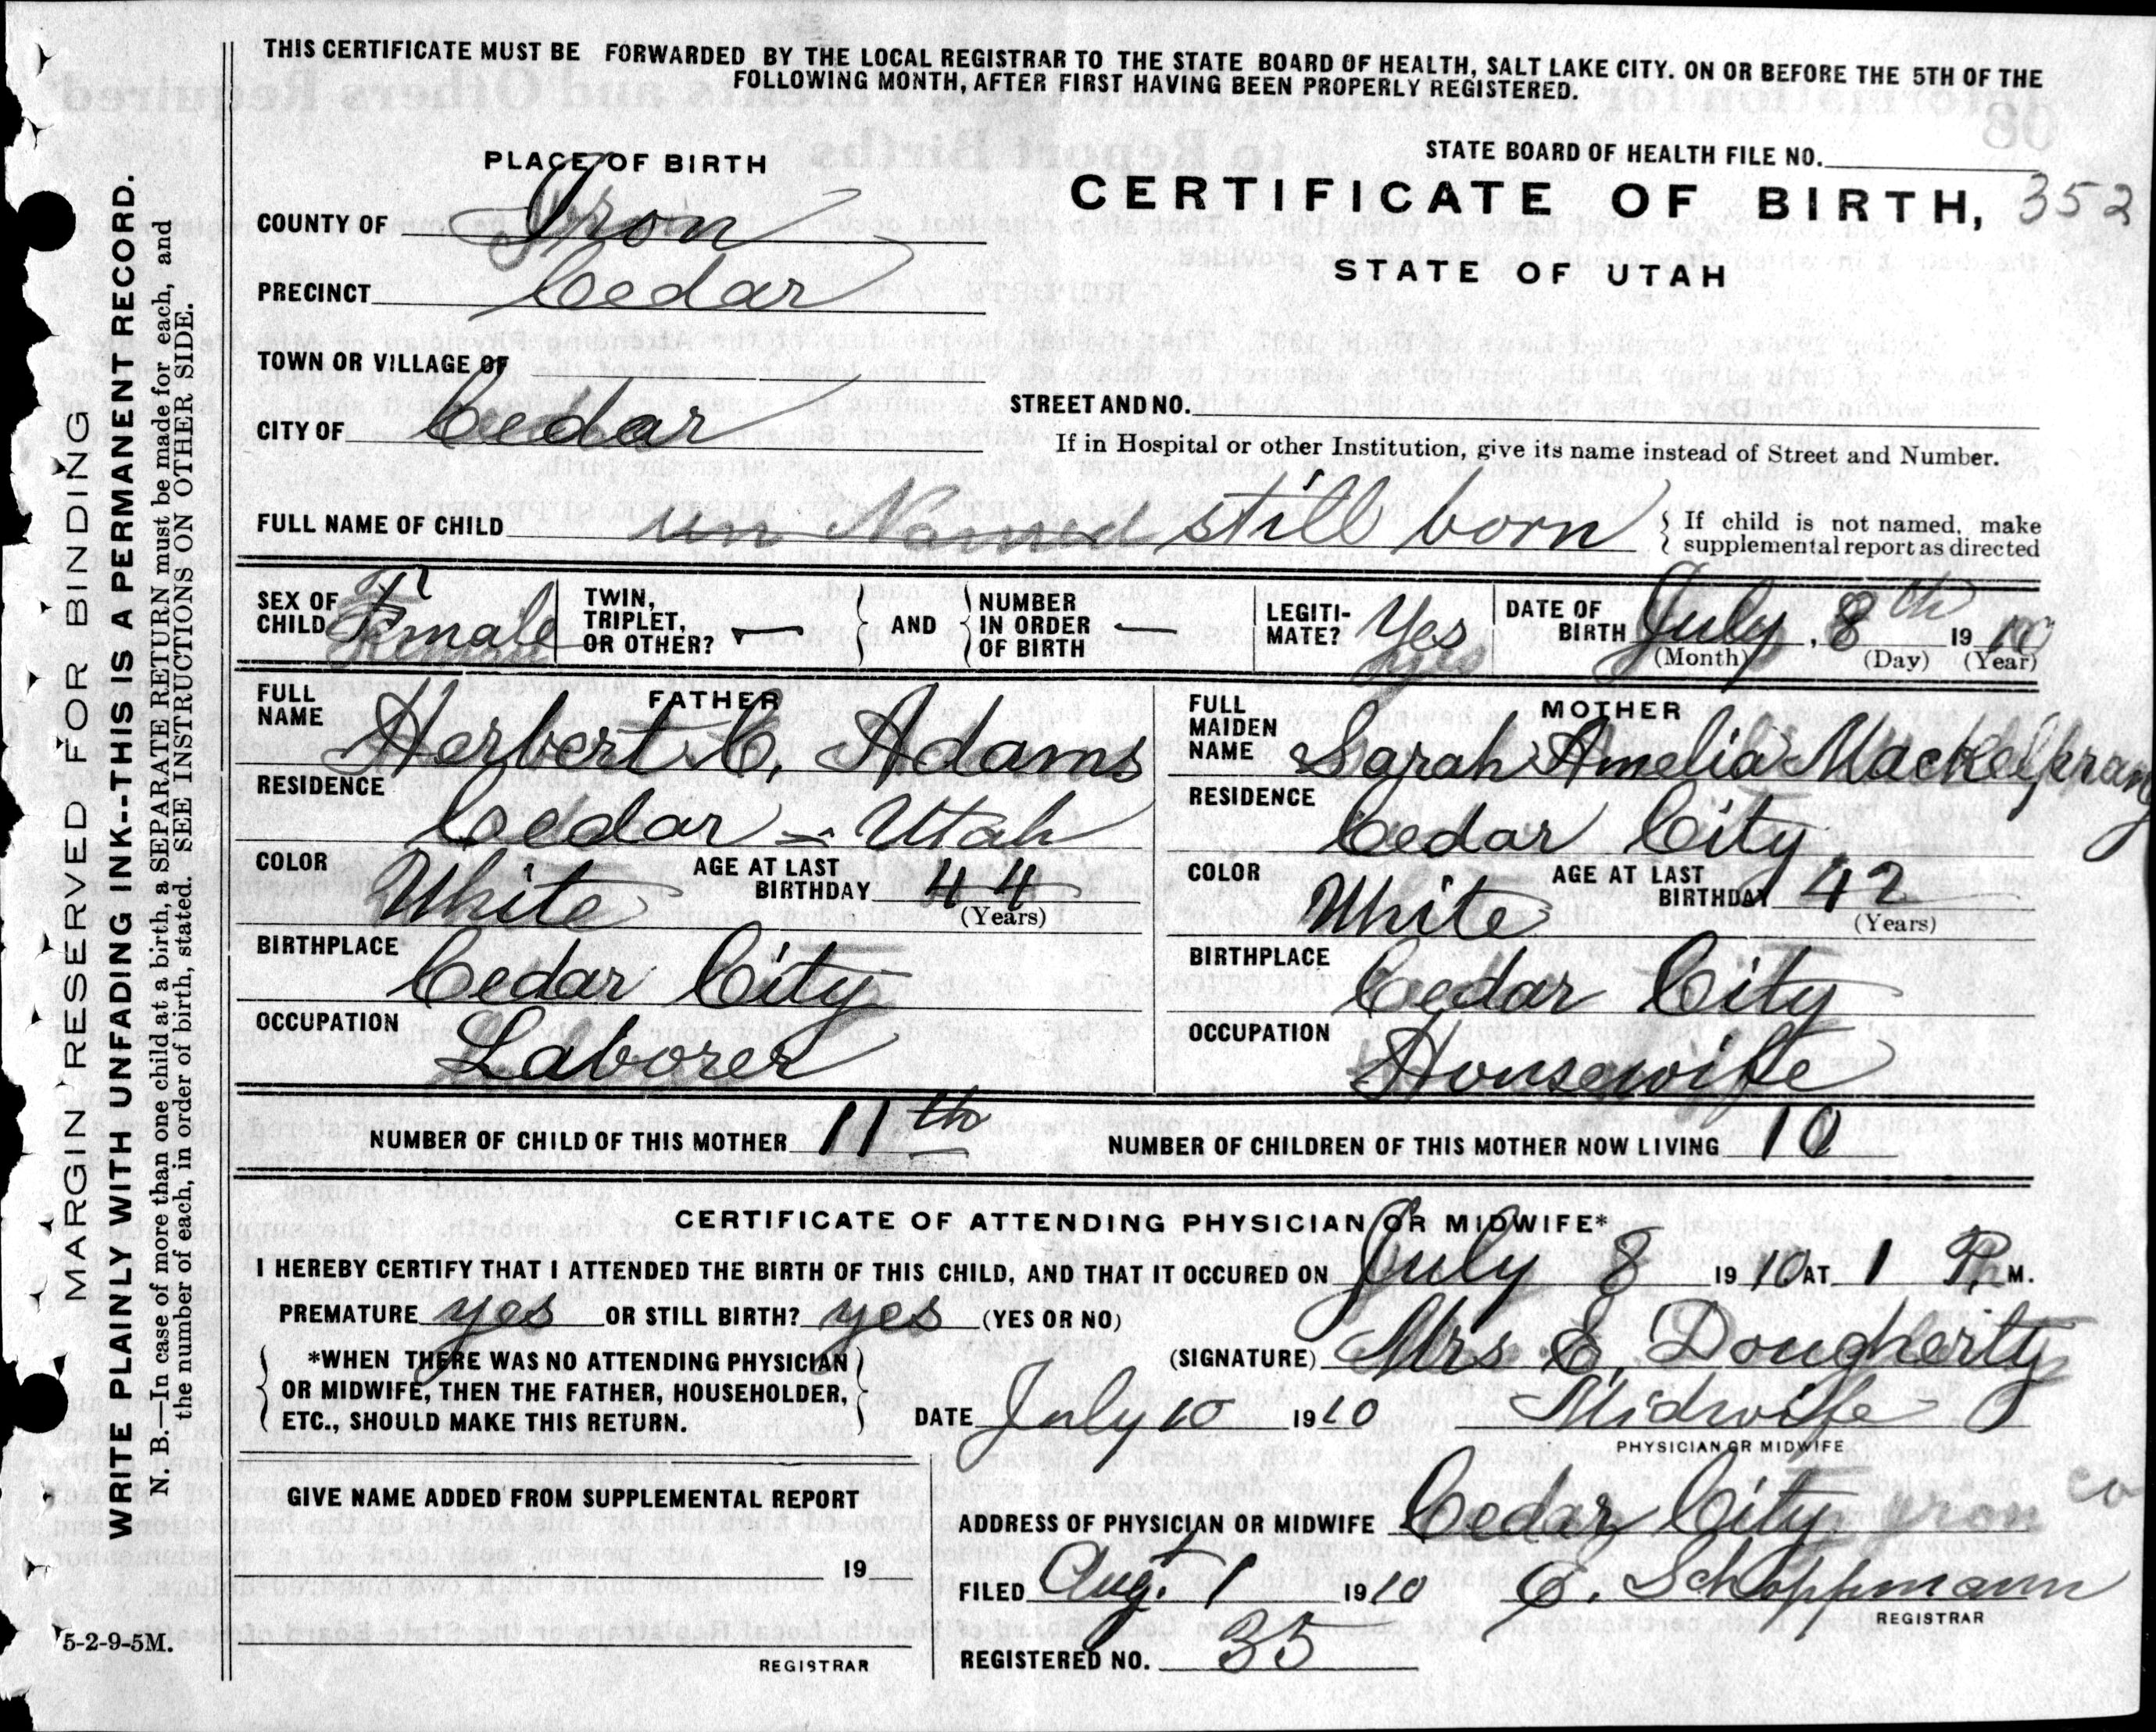 THIS CERTIFICATE MUST BE FORWARDED BY THE LOCAL REGISTRAR TO THE STATE BOARD OF HEALTH, SALT LAKE CITY. ON OR BEFORE THE 5TH OF THE
FOLLOWING MONTH, AFTER FIRST HAVING BEEN PROPERLY REGISTERED.
MARGIN RESERVED FOR BINDING
WRITE PLAINLY WITH UNFADING INK--THIS IS A PERMANENT RECORD.
N. B.—In case of more than one child at a birth, a SEPARATE RETURN must be made for each, and
the number of each, in order of birth, stated. SEE INSTRUCTIONS ON OTHER SIDE.
PLACE OF BIRTH
STATE BOARD OF HEALTH FILE NO.
CERTIFICATE OF BIRTH, 352
STATE OF UTAH
COUNTY OF Iron
PRECINCT Cedar
TOWN OR VILLAGE OF
CITY OF Cedar
STREET AND NO.
If in Hospital or other Institution, give its name instead of Street and Number.
FULL NAME OF CHILD un Named still born
If child is not named, make
supplemental report as directed
SEX OF CHILD Female
TWIN, TRIPLET, OR OTHER? —
AND
NUMBER IN ORDER OF BIRTH —
LEGITI-MATE? Yes
DATE OF BIRTH July, 8th 1910
(Month) (Day) (Year)
FATHER
FULL NAME Herbert C. Adams
RESIDENCE Cedar - Utah
COLOR White AGE AT LAST BIRTHDAY 44
(Years)
BIRTHPLACE Cedar City
OCCUPATION Laborer
MOTHER
FULL MAIDEN NAME Sarah Amelia Mackelprang
RESIDENCE Cedar City
COLOR White AGE AT LAST BIRTHDAY 42
(Years)
BIRTHPLACE Cedar City
OCCUPATION Housewife
NUMBER OF CHILD OF THIS MOTHER 11th
NUMBER OF CHILDREN OF THIS MOTHER NOW LIVING 10
CERTIFICATE OF ATTENDING PHYSICIAN OR MIDWIFE*
I HEREBY CERTIFY THAT I ATTENDED THE BIRTH OF THIS CHILD, AND THAT IT OCCURED ON July 8 1910 AT 1 P. M.
PREMATURE yes OR STILL BIRTH? yes (YES OR NO)
*WHEN THERE WAS NO ATTENDING PHYSICIAN
OR MIDWIFE, THEN THE FATHER, HOUSEHOLDER,
ETC., SHOULD MAKE THIS RETURN.
(SIGNATURE) Mrs E. Dougherty
DATE July 10 1910 Midwife
PHYSICIAN OR MIDWIFE
GIVE NAME ADDED FROM SUPPLEMENTAL REPORT
19
REGISTRAR
ADDRESS OF PHYSICIAN OR MIDWIFE Cedar City Iron Co
FILED Aug. 1 1910 C. Schoppmann
REGISTRAR
REGISTERED NO. 35
5-2-9-5M.